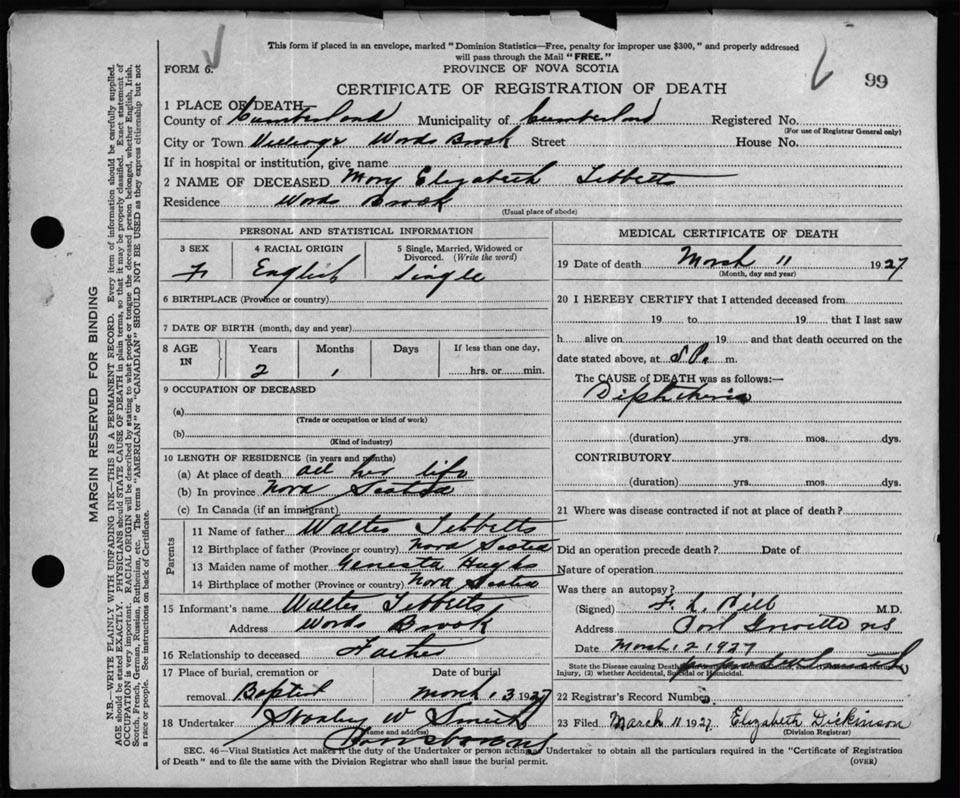 This form if placed in an envelope, marked "Dominion Statistics—Free, penalty for improper use $300," and properly addressed
will pass through the Mail "FREE."
FORM 6.
PROVINCE OF NOVA SCOTIA
99
CERTIFICATE OF REGISTRATION OF DEATH
1 PLACE OF DEATH—
County of Cumberland Municipality of Cumberland Registered No.
(For use of Registrar General only)
City or Town Village Words Brook Street House No.
If in hospital or institution, give name
2 NAME OF DECEASED Mary Elizabeth Tibbetts
Residence Words Brook
(Usual place of abode)
PERSONAL AND STATISTICAL INFORMATION
3 SEX 4 RACIAL ORIGIN 5 Single, Married, Widowed or Divorced. (Write the word)
F English Single
6 BIRTHPLACE (Province or country)
7 DATE OF BIRTH (month, day and year)
8 AGE IN Years Months Days If less than one day,
2 1 hrs. or min.
9 OCCUPATION OF DECEASED
(a)
(Trade or occupation or kind of work)
(b)
(Kind of industry)
10 LENGTH OF RESIDENCE (in years and months)
(a) At place of death all her life
(b) In province Nova Scotia
(c) In Canada (if an immigrant)
Parents
11 Name of father Walter Tibbetts
12 Birthplace of father (Province or country) Nova Scotia
13 Maiden name of mother Genesta
14 Birthplace of mother (Province or country) Nova Scotia
15 Informant's name Walter Tibbetts
Address Words Brook
16 Relationship to deceased Father
17 Place of burial, cremation or Date of burial
removal Baptist March 13 1927
18 Undertaker Stanley W Smith
(Name and address)
Parrsboro NS
MEDICAL CERTIFICATE OF DEATH
19 Date of death March 11 1927
(Month, day and year)
20 I HEREBY CERTIFY that I attended deceased from
19 to 19 that I last saw
h alive on 19 and that death occurred on the
date stated above, at 5 P. m.
The CAUSE of DEATH was as follows:—
Diphtheria
(duration) yrs. mos. dys.
CONTRIBUTORY
(duration) yrs. mos. dys.
21 Where was disease contracted if not at place of death?
Did an operation precede death? Date of
Nature of operation
Was there an autopsy?
(Signed) F. L. Hill M.D.
Address Port Greville NS
Date March 12 1927
State the Disease causing Death
Injury, (2) whether Accidental, Suicidal or Homicidal.
22 Registrar's Record Number
23 Filed March 11 1927 Elizabeth Dickinson
(Division Registrar)
SEC. 46—Vital Statistics Act makes it the duty of the Undertaker or person acting as Undertaker to obtain all the particulars required in the "Certificate of Registration
of Death" and to file the same with the Division Registrar who shall issue the burial permit.
(OVER)
MARGIN RESERVED FOR BINDING
N.B.—WRITE PLAINLY WITH UNFADING INK—THIS IS A PERMANENT RECORD. Every item of information should be carefully supplied.
AGE should be stated EXACTLY. PHYSICIANS should STATE CAUSE OF DEATH in plain terms, so that it may be properly classified. Exact statement of
OCCUPATION is very important. RACIAL ORIGIN will be described by stating to what people or tongue the deceased person belonged, whether English, Irish,
Scotch, French, German, Russian, Ruthenian, etc. The terms "AMERICAN" or "CANADIAN" SHOULD NOT BE USED as they express citizenship but not
a race or people. See instructions on back of Certificate.